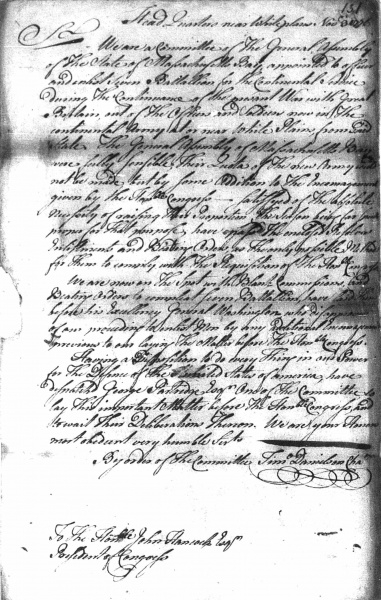 Head Quarters near White plains Nov
151
Sir
We are a Committee of The General Assembly
of The State of Massachusetts Bay, appointed to
and enlist Seven Battallion for the Continental Service
during The Continuance of The present War with Great
Britain, out of The Officers and Soldiers now in The
continental Army at or near White Plains from said
State. The General Assembly of Massachusetts Bay
were fully sensible Their Quota of The new Army could
not be made, but by Some Addition to The Encouragement
given by The Honble Congress satisfyed of The absolute
Necessity of raising Their Proportion, The Season being far
for That purpose, have
and Beating Orders, as The only possible Method
for Them to comply with The Requisition of The Honble Congress
We are now on The Spot with Blank Commissions, and
Beating Orders to compleat seven Battallions, have
before his Excellency General Washington, who
of our proceeding to enlist Men by any additional Encouragement
previous to our laying The Matter before The Honble Congress.
Having a Disposition to do every Thing in our Power
for The Defence of The State of America, have
deputed George Partridge Esqr One of The Committee to
lay This important Matter before The Honble Congress, and
to wait Their Deliberation Thereon. We are your Honours
most obedient very humble Servts
By order of The Committee Timo Danielson Chairman
To The Honble John Hancock Esqr
President of Congress